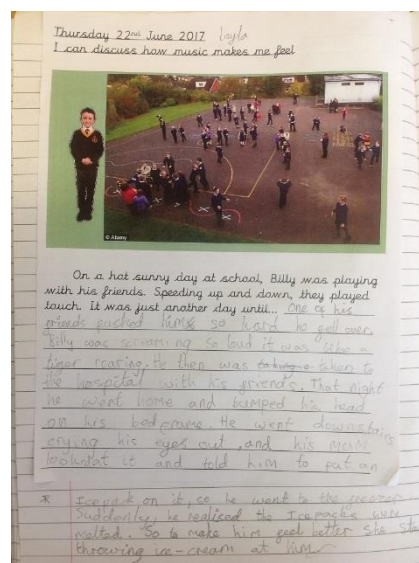 Thursday 22nd June 2017 Layla
I can discuss how music makes me feel
© Alamy
On a hot sunny day at school, Billy was playing
with his friends. Speeding up and down, they played
touch. It was just another day until... One of his
friends pushed him so hard he fell over.
Billy was screaming so loud it was like a
tiger roaring. He then was taken to
the hospital with his friends. That night
he went home and bumped his head
on his bed frame. He went downstairs
crying his eyes out, and his mum
look at it and told him to put an
* Icepack on it, so he went to the freezer
Suddenly, he realised the Icepacks were
melted. So to make him feel better she
throwing ice-cream at him